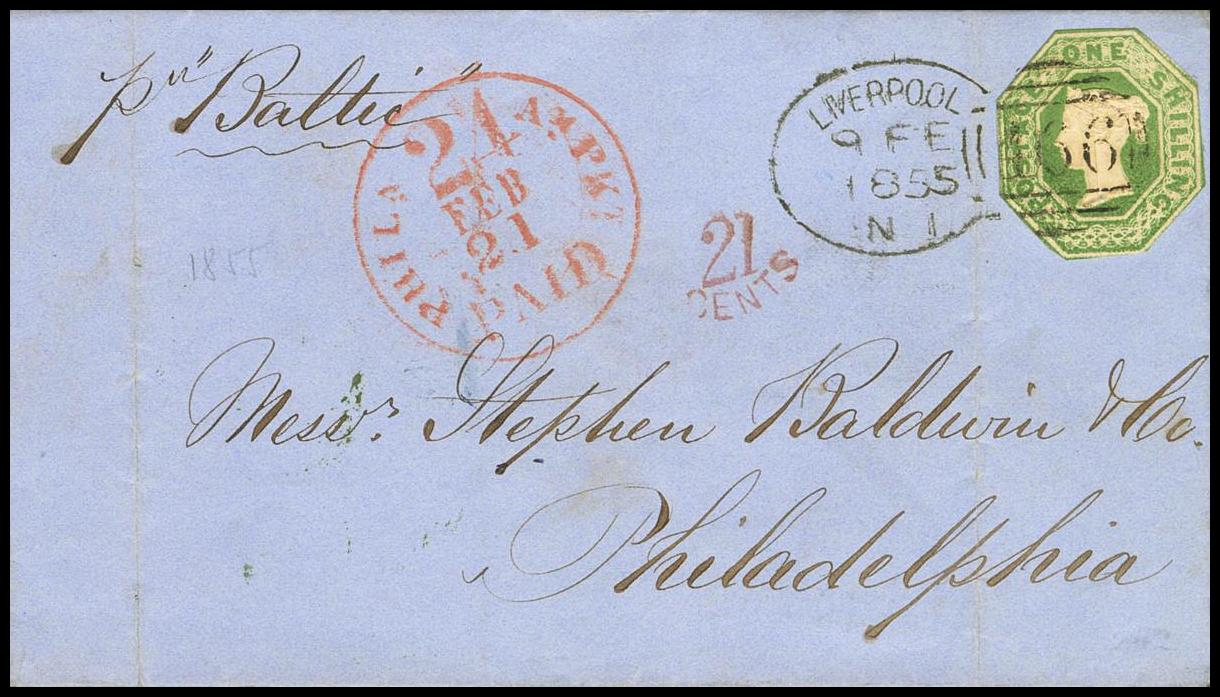 pr "Baltic"
PHILA AM PKT
24
FEB
21
PAID
21
CENTS
LIVERPOOL
9 FE
1855
N 1
466
ONE SHILLING
1855
Messrs. Stephen Baldwin & Co.
Philadelphia